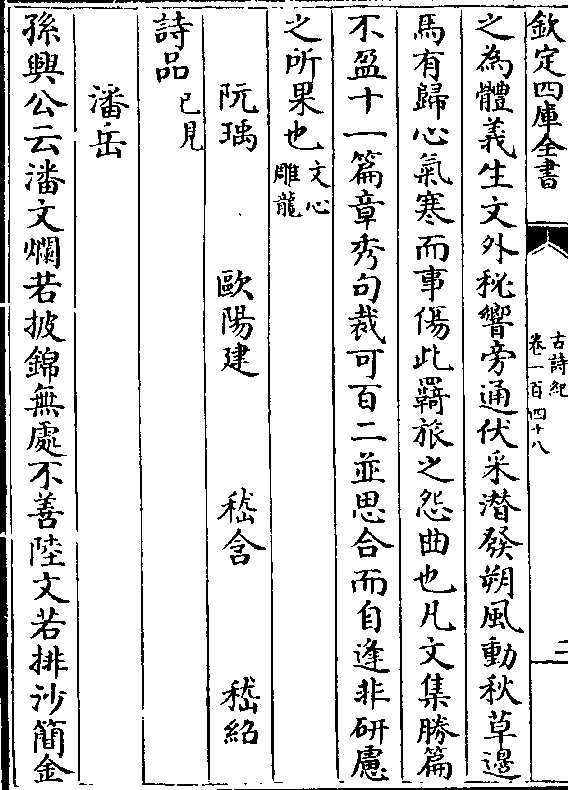 欽定四庫全書
古詩紀
卷一百四十八
二
之為體義生文外秘響旁通伏采潛發朔風動秋草邊
馬有歸心氣寒而事傷此羇旅之怨曲也凡文集勝篇
不盈十一篇章秀句裁可百二並思合而自逢非研慮
之所果也文心
雕龍
阮瑀 歐陽建 嵇含 嵇紹
詩品已見
潘岳
孫興公云潘文爛若披錦無處不善陸文若排沙簡金